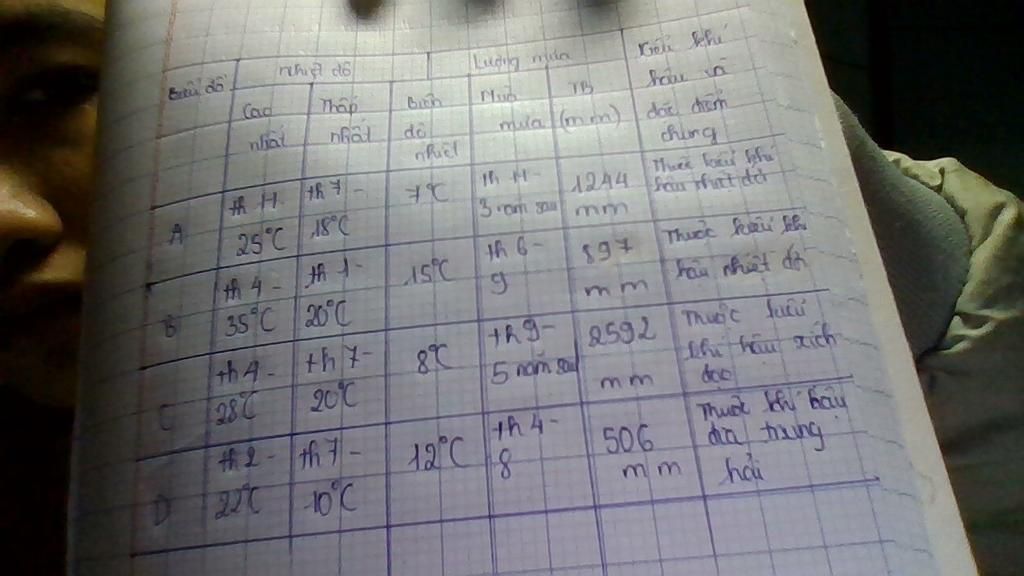 Biểu đồ
nhiệt độ
Lượng mưa
Kiểu khí
hậu và
đặc điểm
chung
Cao
nhất
Thấp
nhất
Biên
độ
nhiệt
Mùa
mưa
TB
(mm)
A
th 11
25°C
th 7-
18°C
7°C
th 11-
3 năm sau
1244
mm
Thuộc kiểu khí
hậu nhiệt đới
B
th 4-
35°C
th 1-
20°C
15°C
th 6-
9
897
mm
Thuộc kiểu khí
hậu nhiệt đới
C
th 4-
28°C
th 7-
20°C
8°C
th 9-
5 năm sau
2592
mm
Thuộc kiểu
khí hậu xích
đạo
D
th 2-
22°C
th 7-
10°C
12°C
th 4-
8
506
mm
Thuộc khí hậu
địa trung
hải